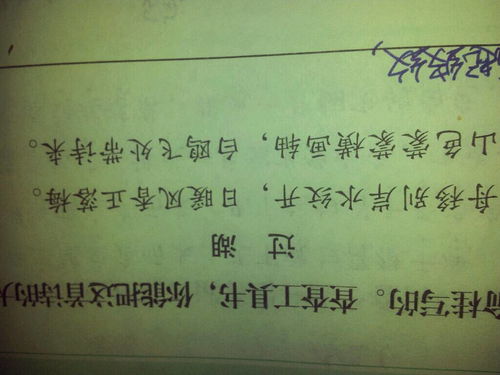 俞桂写的。查查工具书，你能把这首诗的大
过 湖
舟移别岸水纹开，日暖风香正落梅。
山色蒙蒙横画轴，白鸥飞处带诗来。